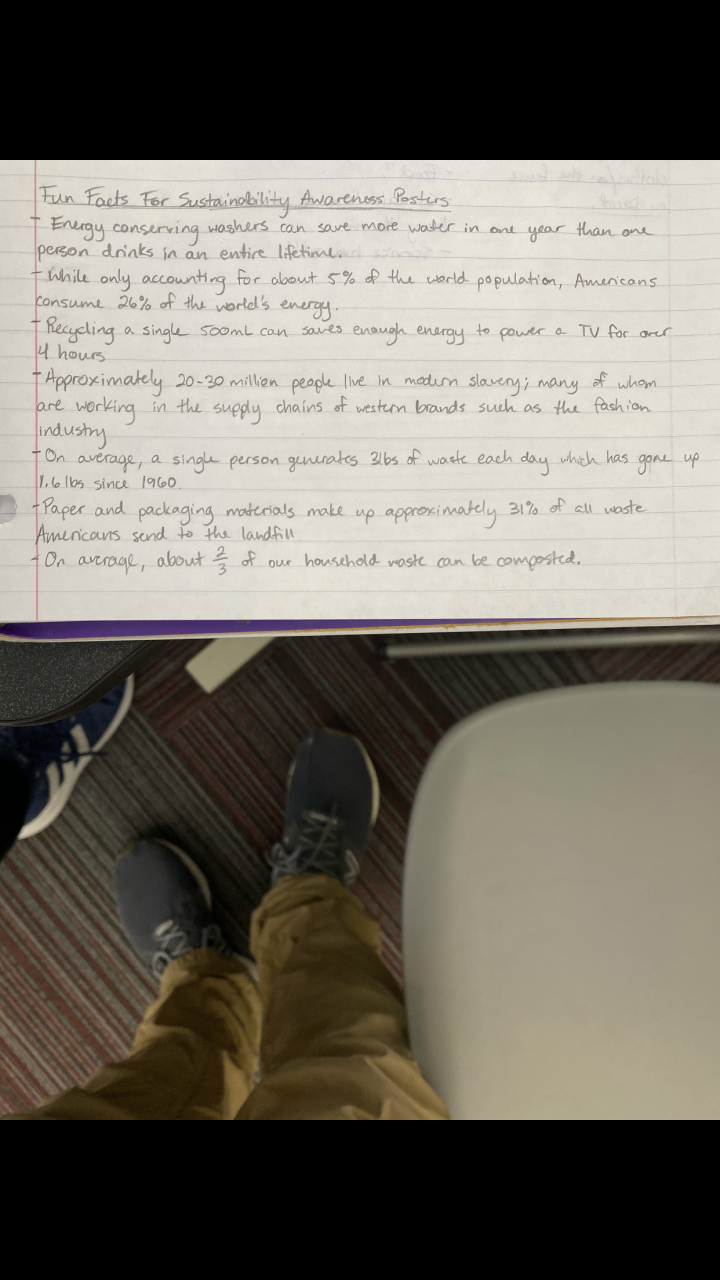 Fun Facts For Sustainability Awareness Posters
- Energy conserving washers can save more water in one year than one
person drinks in an entire lifetime.
- While only accounting for about 5% of the world population, Americans
consume 26% of the world's energy.
- Recycling a single 500mL can saves enough energy to power a TV for over
4 hours
- Approximately 20-30 million people live in modern slavery; many of whom
are working in the supply chains of western brands such as the fashion
industry
- On average, a single person generates 3lbs of waste each day which has gone up
1.6 lbs since 1960.
- Paper and packaging materials make up approximately 31% of all waste
Americans send to the landfill
- On average, about 2/3 of our household waste can be composted.